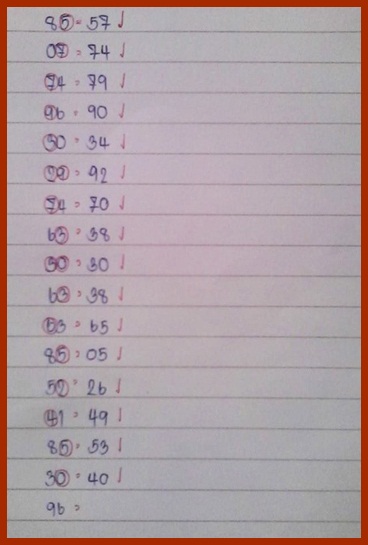 85 = 57 √
07 = 74 √
74 = 79 √
96 = 90 √
30 = 34 √
29 = 92 √
74 = 70 √
63 = 38 √
30 = 30 √
63 = 38 √
63 = 65 √
85 = 05 √
52 = 26 √
41 = 49 √
85 = 53 √
30 = 40 √
96 =